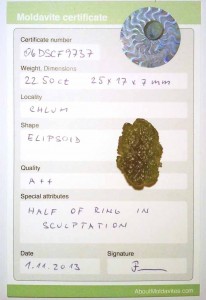 Moldavite certificate
Certificate number
06DSCF9737
Weight, Dimensions
22.50ct 25x17x7mm
Locality
CHLUM
Shape
ELIPSOID
Quality
A++
Special attributes
HALF OF RING IN
SCULPTATION
Date
Signature
1.11.2013
AboutMoldavites.com